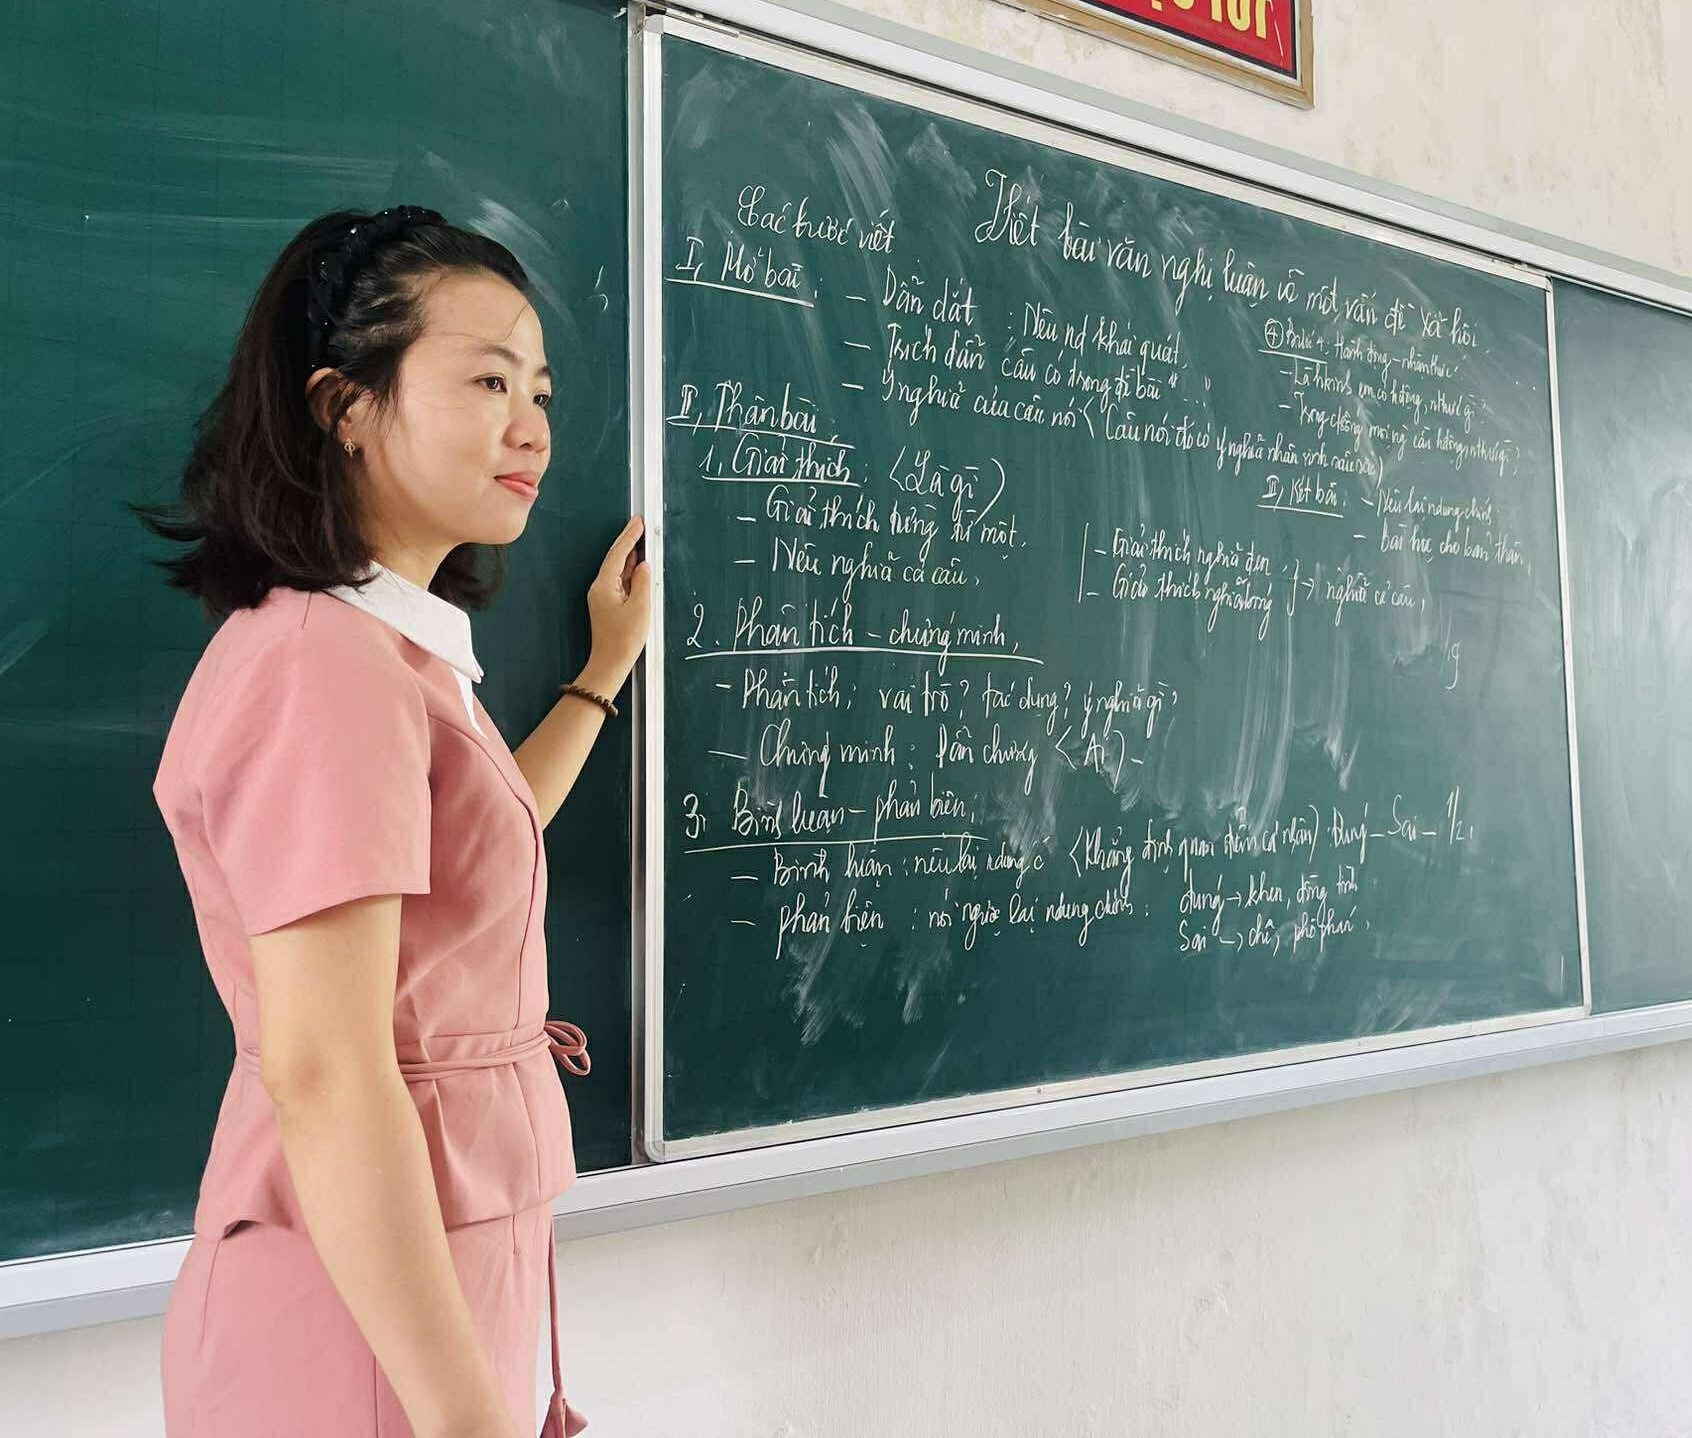 TỐT
Viết bài văn nghị luận về một vấn đề xã hội.
Các bước viết
I, Mở bài: - Dẫn dắt: Nêu nd khái quát.
- Trích dẫn câu có trong đề bài "..."
- Ý nghĩa của câu nói (Câu nói đó có ý nghĩa nhân sinh sâu sắc)
II, Thân bài:
1, Giải thích: (Là gì)
- Giải thích từng từ một.
- Nêu nghĩa cả câu,
- Giải thích nghĩa đen
- Giải thích nghĩa bóng } → nghĩa cả câu,
2. Phân tích - chứng minh,
- Phân tích: vai trò? tác dụng? ý nghĩa gì?
- Chứng minh: Dẫn chứng (Ai) -
3, Bình luận - phản biện,
- Bình luận: nêu lại ndung c (Khẳng định quan điểm cá nhân) Đúng - Sai - 1/2,
- phản biện: nói ngược lại ndung chính: đúng → khen, đồng tình
Sai → chê, phê phán,
④ Bước 4: Hành động - nhận thức:
- Là hsinh em có hđộng, nthức gì?
- Trong cđồng mọi ng cần hđộng nthức gì?
III, Kết bài: - Nêu lại ndung chính
- bài học cho bản thân,